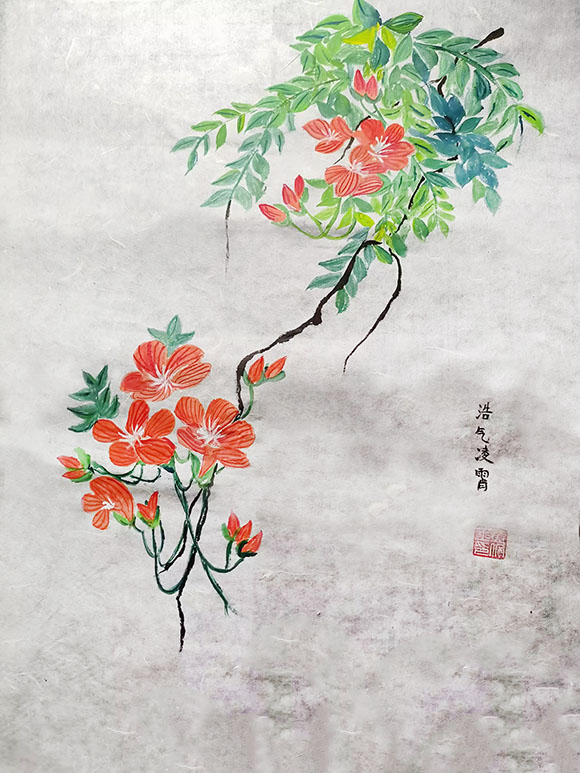 浩气凌霄